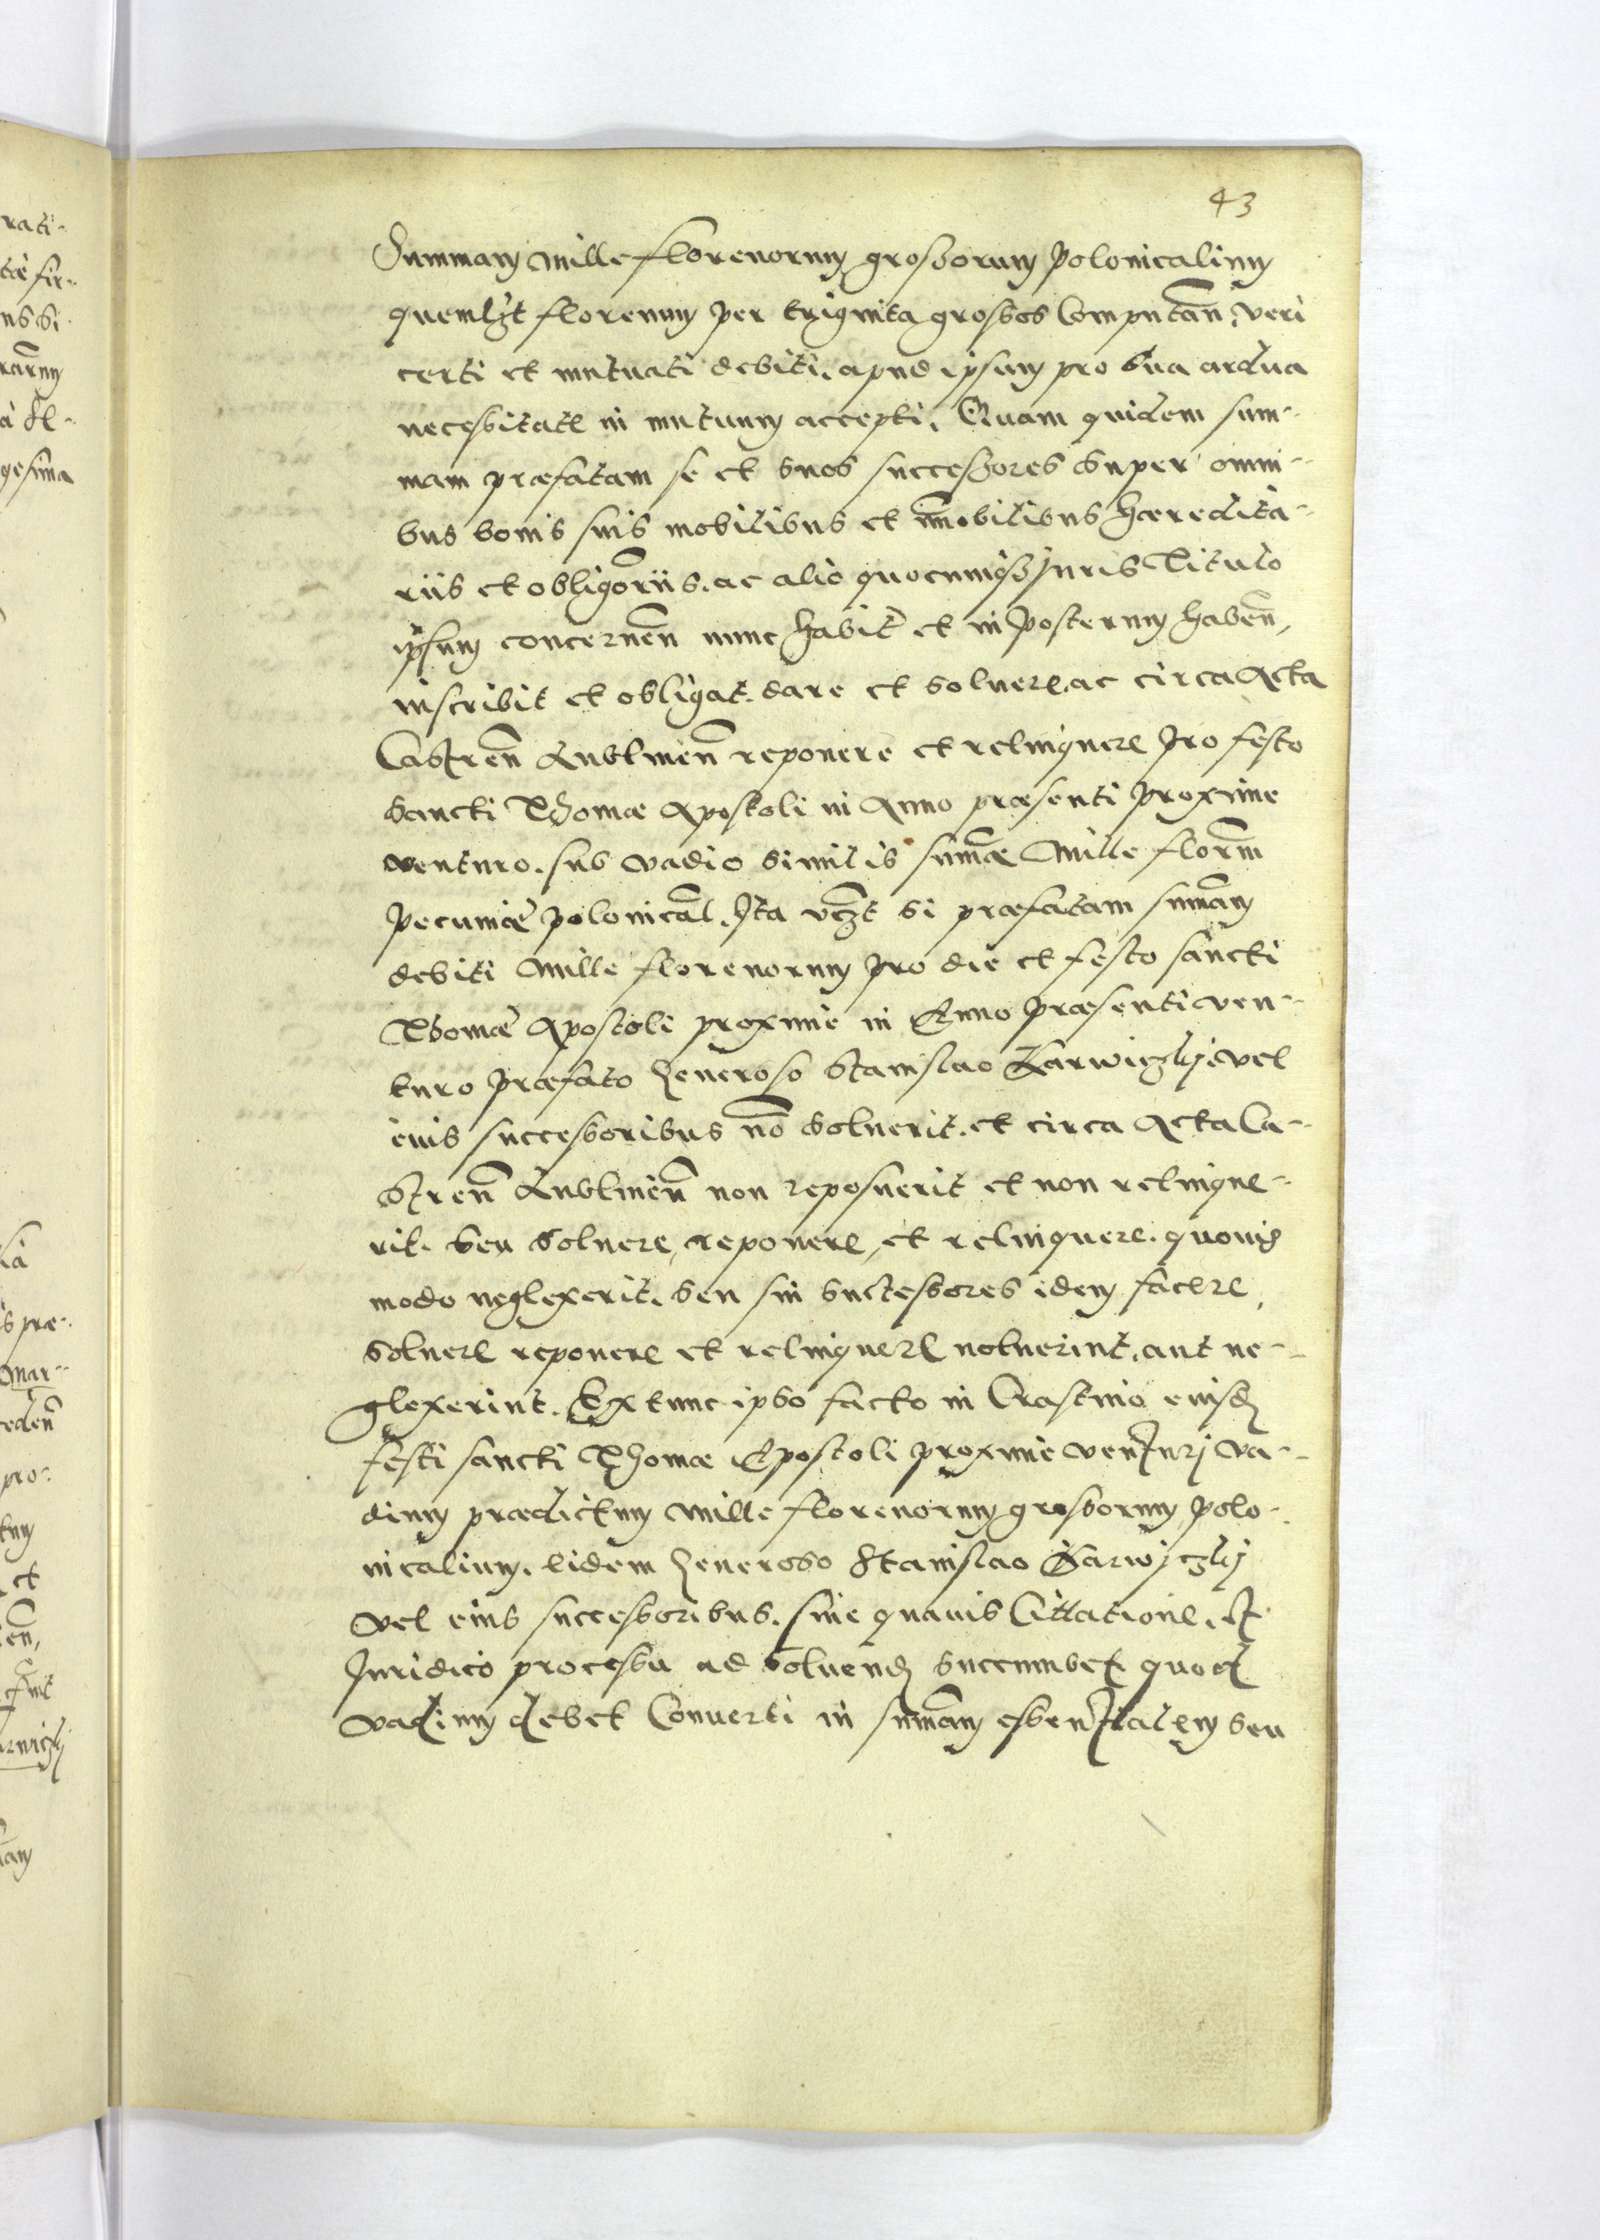 43
Summam mille florenorum grossorum polonicalium
quemlzt florenum per triginta grossos Computan̄, veri
certi et mutuati debiti, apud ipsum pro sua ardua
necessitate in mutuum accepti, Quam quidem sum-
mam præfatam se et suos successores super omni-
bus bonis suis mobilibus et im̄obilibus hæredita-
riis et oblig̃oriis. ac alio quocunqz Juris Titulo
ipsum concernen̄ nunc habit̃ et in posterum haben̄,
inscribit et obligat. dare et solvere, ac circa Acta
Castren̄ Lublinen̄ reponere et relinquere pro festo
Sancti Thomæ Apostoli in Anno præsenti proxime
venturo. sub vadio similis sum̄æ Mille floren̄
pecuniæ polonical̄. Ita vczt si præfatam sum̄am
debiti Mille florenorum pro die et festo sancti
Thomæ Apostoli proxime in Anno præsenti ven-
turo præfato Generoso Stanislao Karwiczkij vel
eius successoribus nō solverit. et circa Acta Ca-
stren̄ Lublinen̄ non reposuerit et non relinque-
rit. seu Solvere, reponere, et relinquere. quovis
modo neglexerit, seu sui successores idem facere,
solvere reponere et relinquere noluerint, aut ne-
glexerint. Ex tunc ipso facto in Crastino eiusd̄
festi sancti Thomæ Apostoli proxime venturj va-
dium prædictum mille florenorum grossorum polo-
nicalium. eidem Generoso Stanislao Karwjczkij
vel eius successoribus. sine quavis Cittatione, et
Juridico processu ad solvend̄ succumbet. quod
vadium debet Converti in sum̄am essentialem seu
rati-
pro-
et